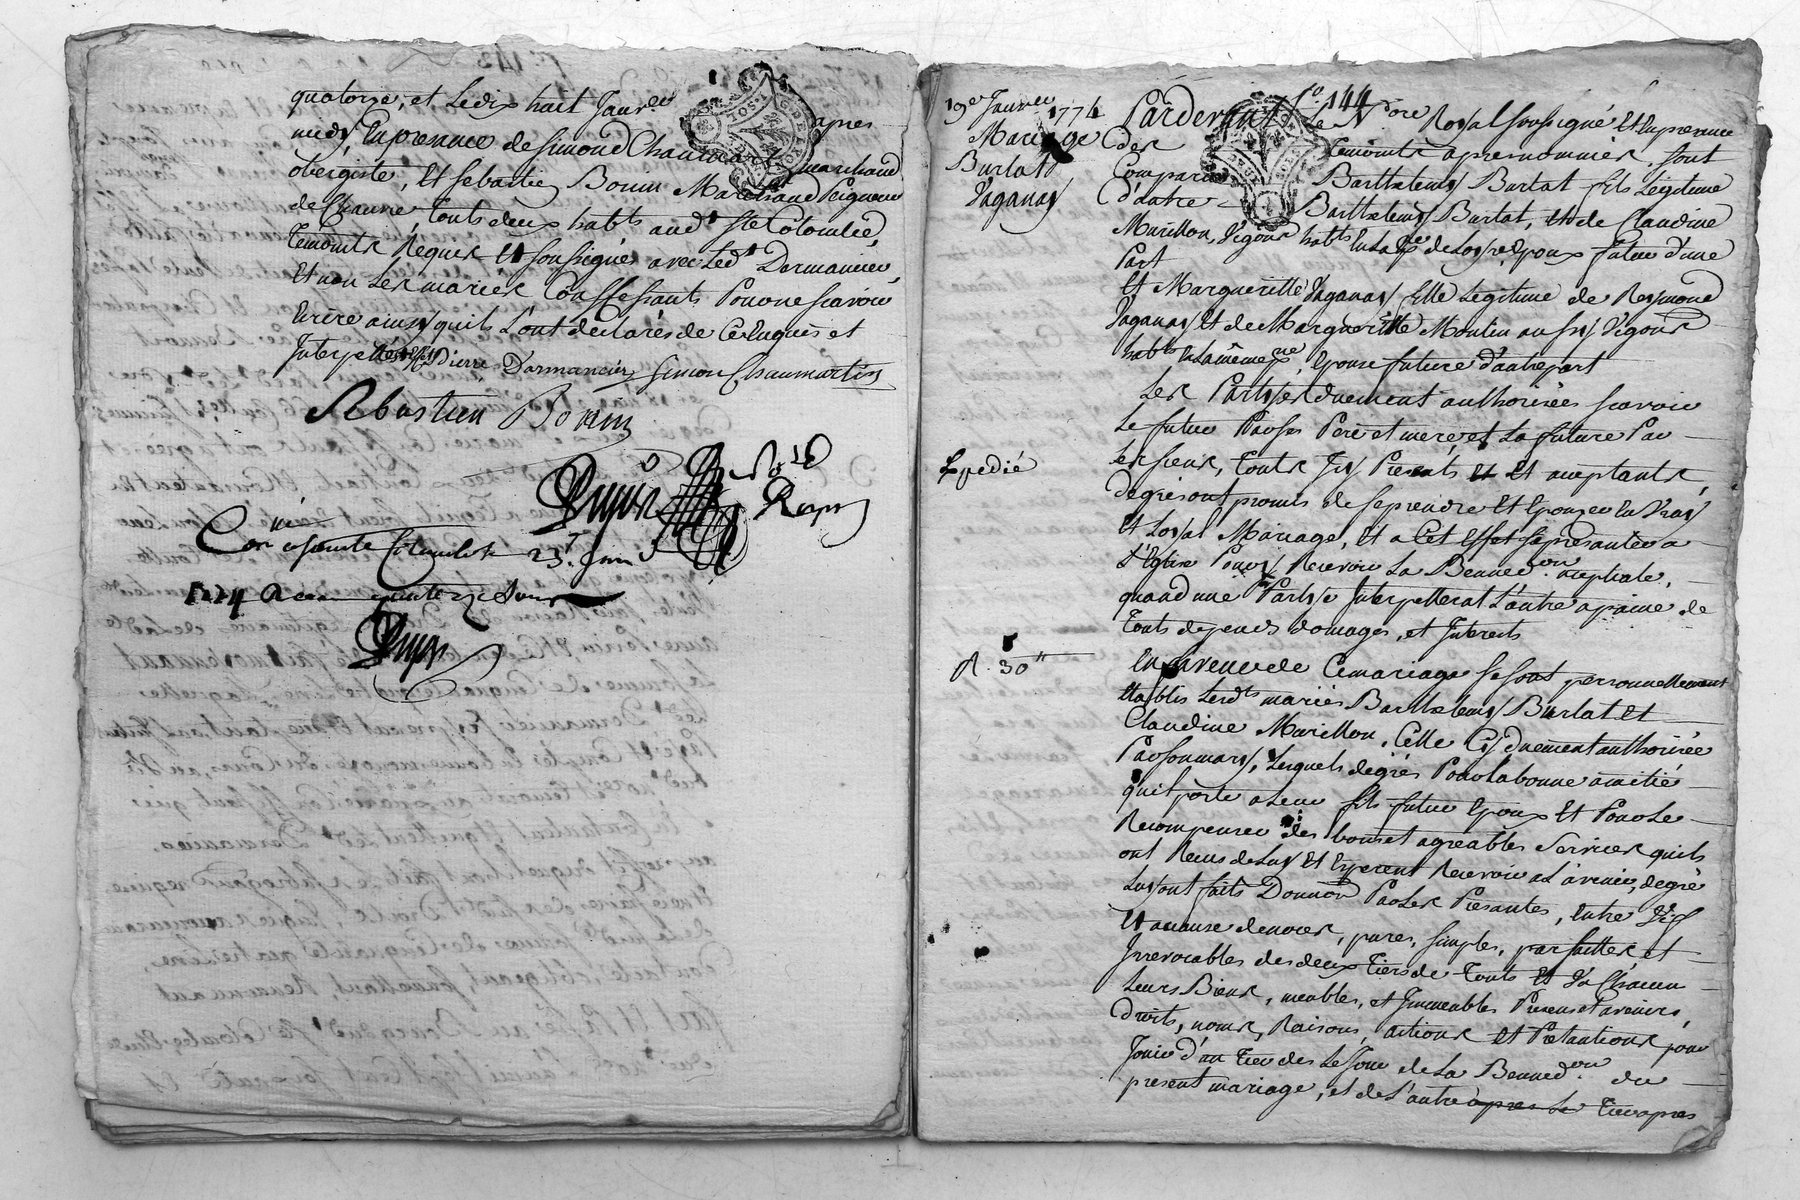 quatorze, et le dix huit Janvier apres
midy, En presence de Simond Chaumartin marchand
obergiste, Et sebastien Bonin Marchand Peigneur
de Chanvre, touts deux habts aud. Ste Colombe,
temoints Requis Et soussignés avec led. Dormancier,
Et non les mariés Confessants Pour ne scavoir
Ecrire ainsy quils l'ont declarés de ce Enquis et
Interpellés Pierre Dormancier Simon Chaumartin
Sebastien Bonin
Con ste Colombe 23. Janv.
1774
19e Janvier 1774
Mariage
Burlat
Paganay
Expedié
R. 30"
fo. 144
Pardevant Le Nore Royal soussigné Et En presence
des temoints apres nommés, sont
Comparus Barthelemy Burlat fils Legitime
d'autre Barthelemy Burlat, Et de Claudine
Marillon, Vigon habts En la de Epoux futur d'une
Part
Et Margueritte Paganay fille Legitime de Reymond
Paganay Et de Margueritte Moulin aussy Vigon
habts En la même Epouse future d'autre part
Les Partyes duement authorisées scavoir
Le futur Par ses Pere et mere, et La future Par
Les siens, touts Icy Presents Et acceptants,
de gré ont promis de se prendre Et Epouser En Vray
Et Loyal Mariage, Et a Cet Effet se presenter a
L'Eglise Pour y Recevoir La Benned.on nuptiale,
quand une Partye Interpellerat L'autre a paine de
touts depends domages, et Interests
En faveur de Ce mariage se sont personnellement
Etablis Lesdts mariés Barthelemy Burlat Et
Claudine Marillon, Celle Cy duement authorisée
Par son mary, Lesquels de gré Pour La bonne amitié
quil porte a Leur fils futur Epoux Et Pour Le
Recompenser des bons et agreables Services quils
ont Recus de Luy Et Esperent Recevoir a L'avenir, de gré
Luy ont faits Donnon Par Les Presantes, Entre Vifs
Et a cause de noces, pures, simples, parfaittes et
Irrevocables des deux Tiers de touts Et Chacun
Leurs Biens, meubles, et Immeubles Presens et avenirs,
Droits, noms, Raisons, actions et Pretantions pour
Jouir d'un tiers des Le jour de La Benned.on du
present mariage, et de L'autre apres Le tiers apres